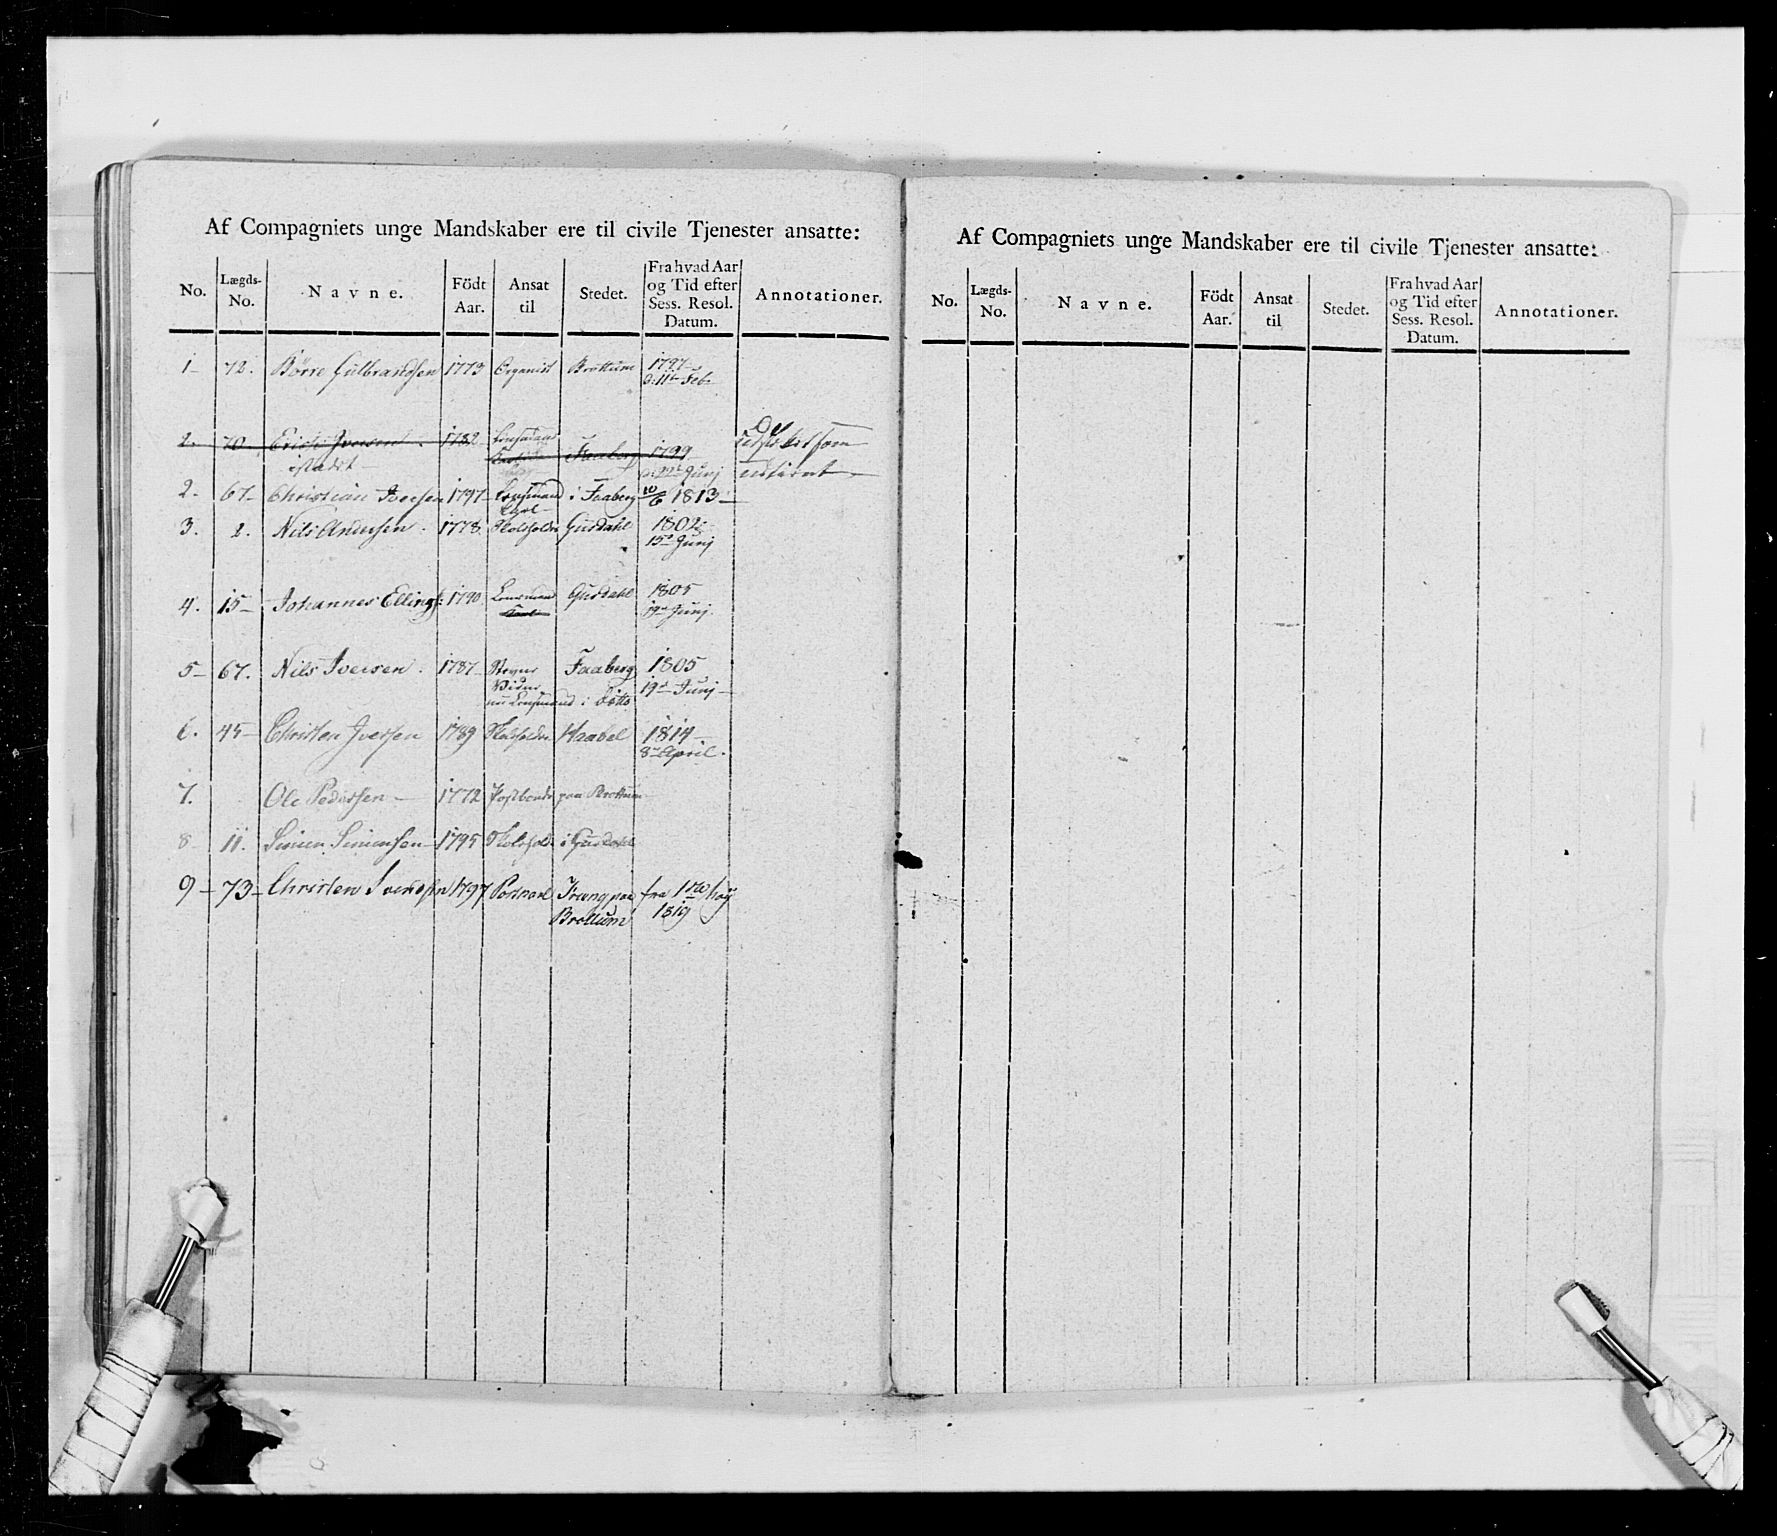 Af Compagniets unge Mandskaber ere til civile Tjenester ansatte:
No. Lægds-No. Navne. Født Aar. Ansat til Stedet. Fra hvad Aar og Tid efter Sess. Resol. Datum. Annotationer.
1 72. Börre Gulbrandsen 1773 Organist Brøttum 1797
d: 11te Feb.
2. 70. Erich Iversen 1782 Lensmand Faaberg 1799
istædet d: 22de Junj
2. 67 Christian Iversen 1797 Lensmand i Faaberg 10/6 1813
Karl
3. 2. Nils Andersen 1778 Skoleholder Gusdahl 1802
15de Junj
4. 15 Johannes Ellings: 1790 Lensmand Gusdahl 1805
Karl 19de Junj
5 67. Nils Iversen 1787 Stevne Faaberg 1805
Vidne 19de Junj
nu Lensmand i Ditto
6. 45 Christen Iversen 1789 Skoleholder 1814
8de April.
7. Ole Pedersen 1772 Postbonde paa Brøttum
8 11. Simen Simensen 1795 Skolehold: i Gusdahl
9 73 Christen 1797 paa fra
Brøttum 1819
Af Compagniets unge Mandskaber ere til civile Tjenester ansatte:
No. Lægds-No. Navne. Födt Aar. Ansat til Stedet. Fra hvad Aar og Tid efter Sess. Resol. Datum. Annotationer.